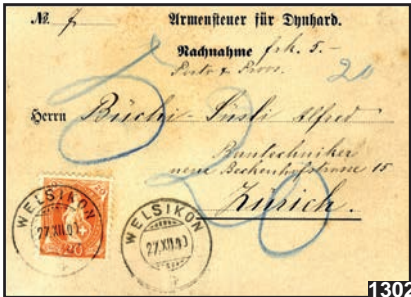 № 7. Armensteuer für Dynhard.
Nachnahme frk. 5.-
Porto & Prov. 20
Herrn Büchi-Süsli Alfred
Bautechniker
neue Beckenhofstrasse 15
Zürich.
5 20
20
WELSIKON
27.XII.00
20
WELSIKON
27.XII.00
1302